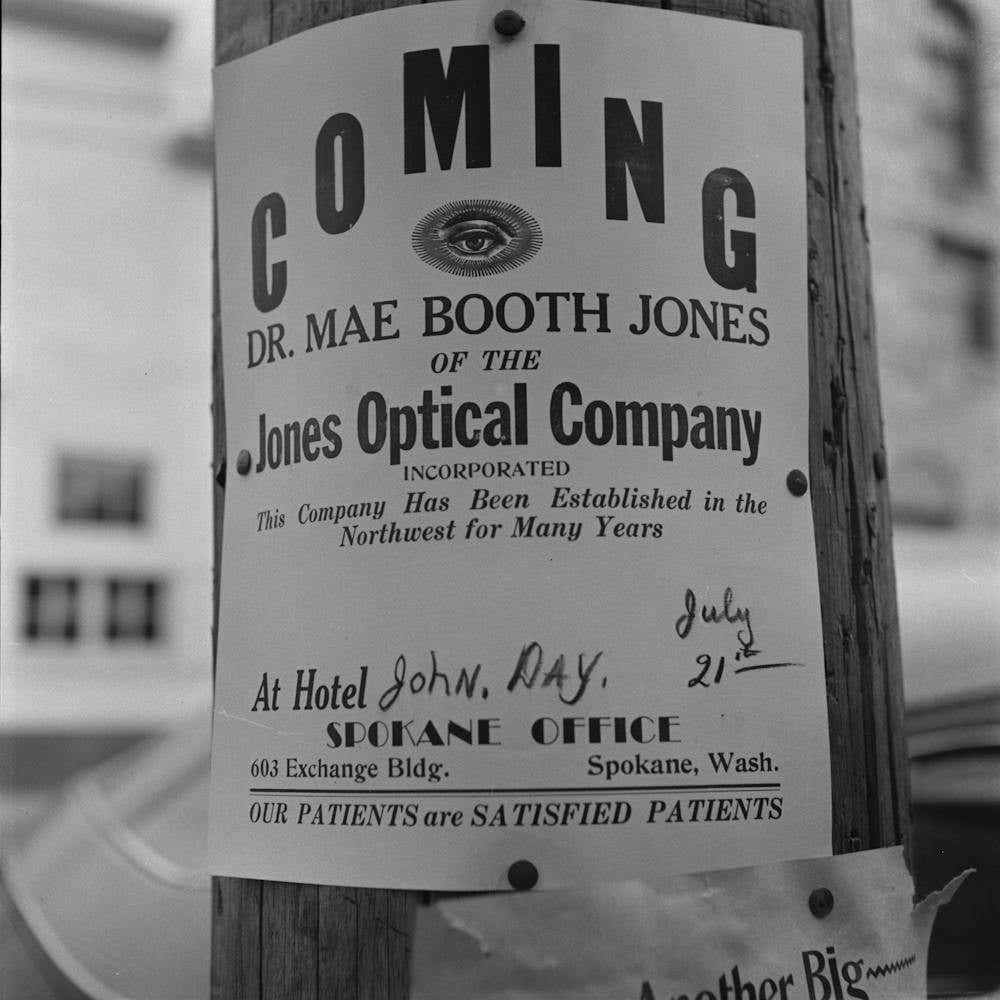 COMING
DR. MAE BOOTH JONES
OF THE
Jones Optical Company
INCORPORATED
This Company Has Been Established in the
Northwest for Many Years
July
21st
At Hotel John. DAY.
SPOKANE OFFICE
603 Exchange Bldg. Spokane, Wash.
OUR PATIENTS are SATISFIED PATIENTS
Another Big